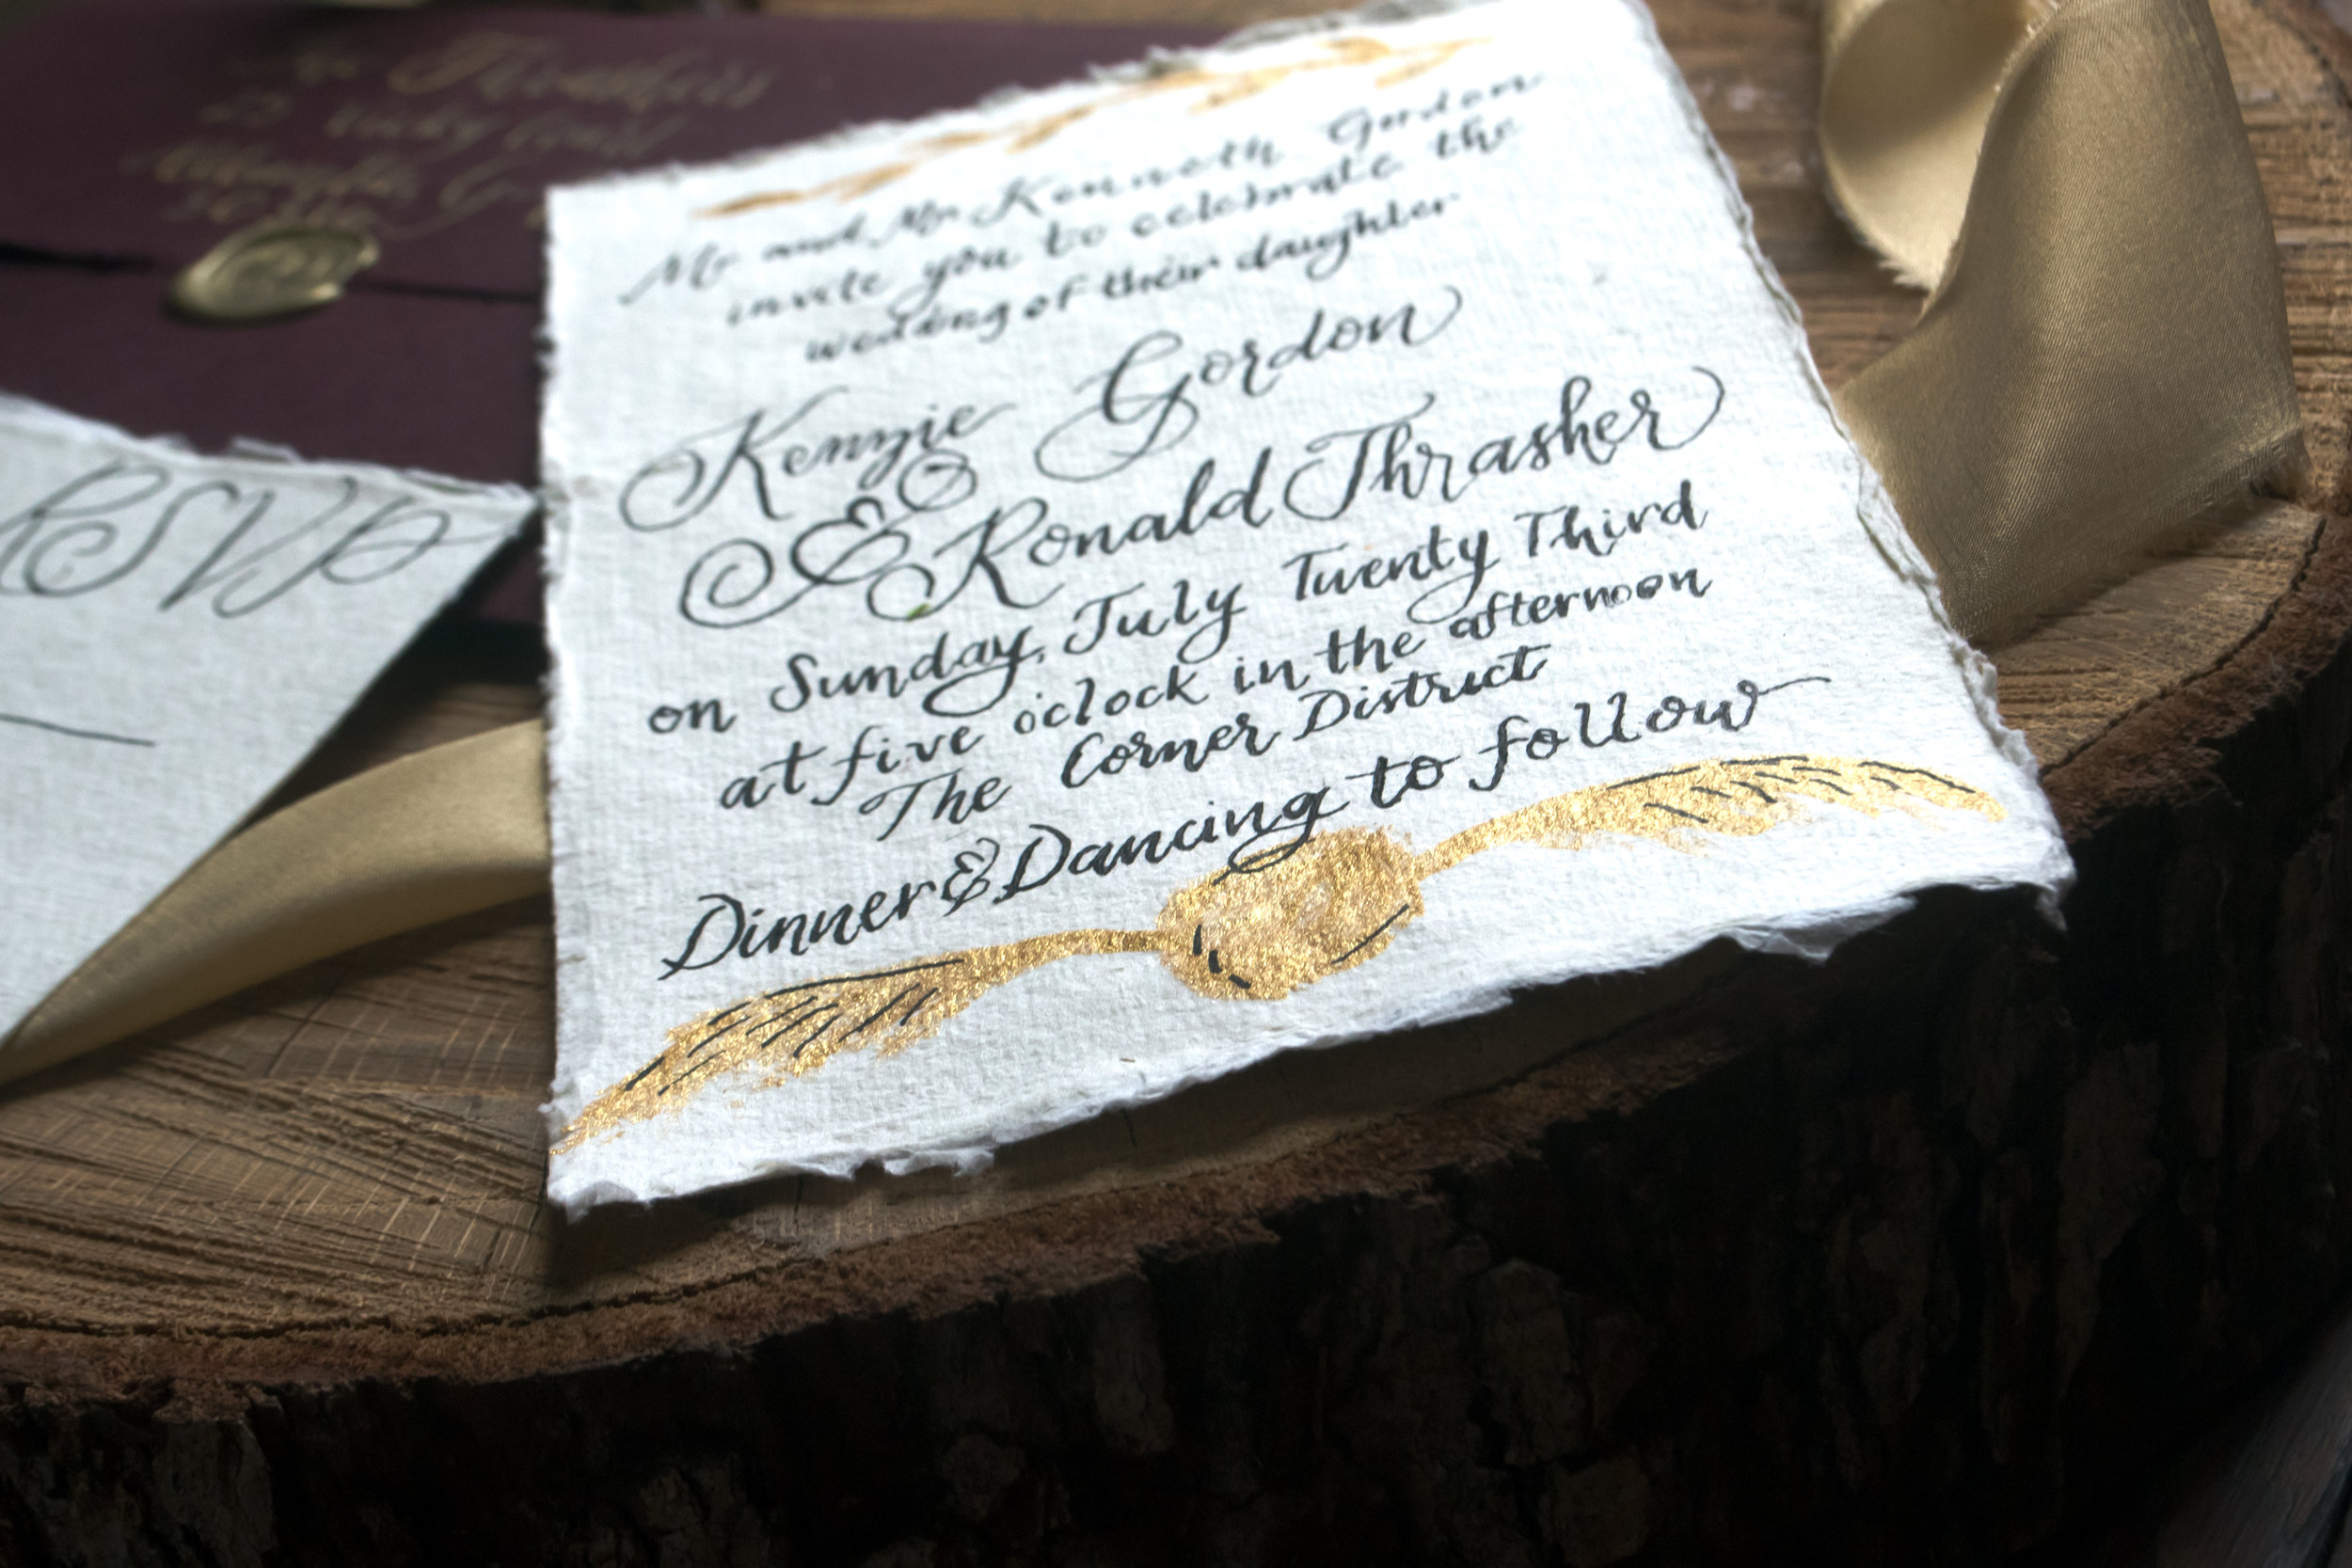 Mr. and Mrs. Kenneth Gordon
invite you to celebrate the
wedding of their daughter
Kenzie Gordon
& Ronald Thrasher
on Sunday, July Twenty Third
at five o'clock in the afternoon
The Corner District
Dinner & Dancing to follow
RSVP